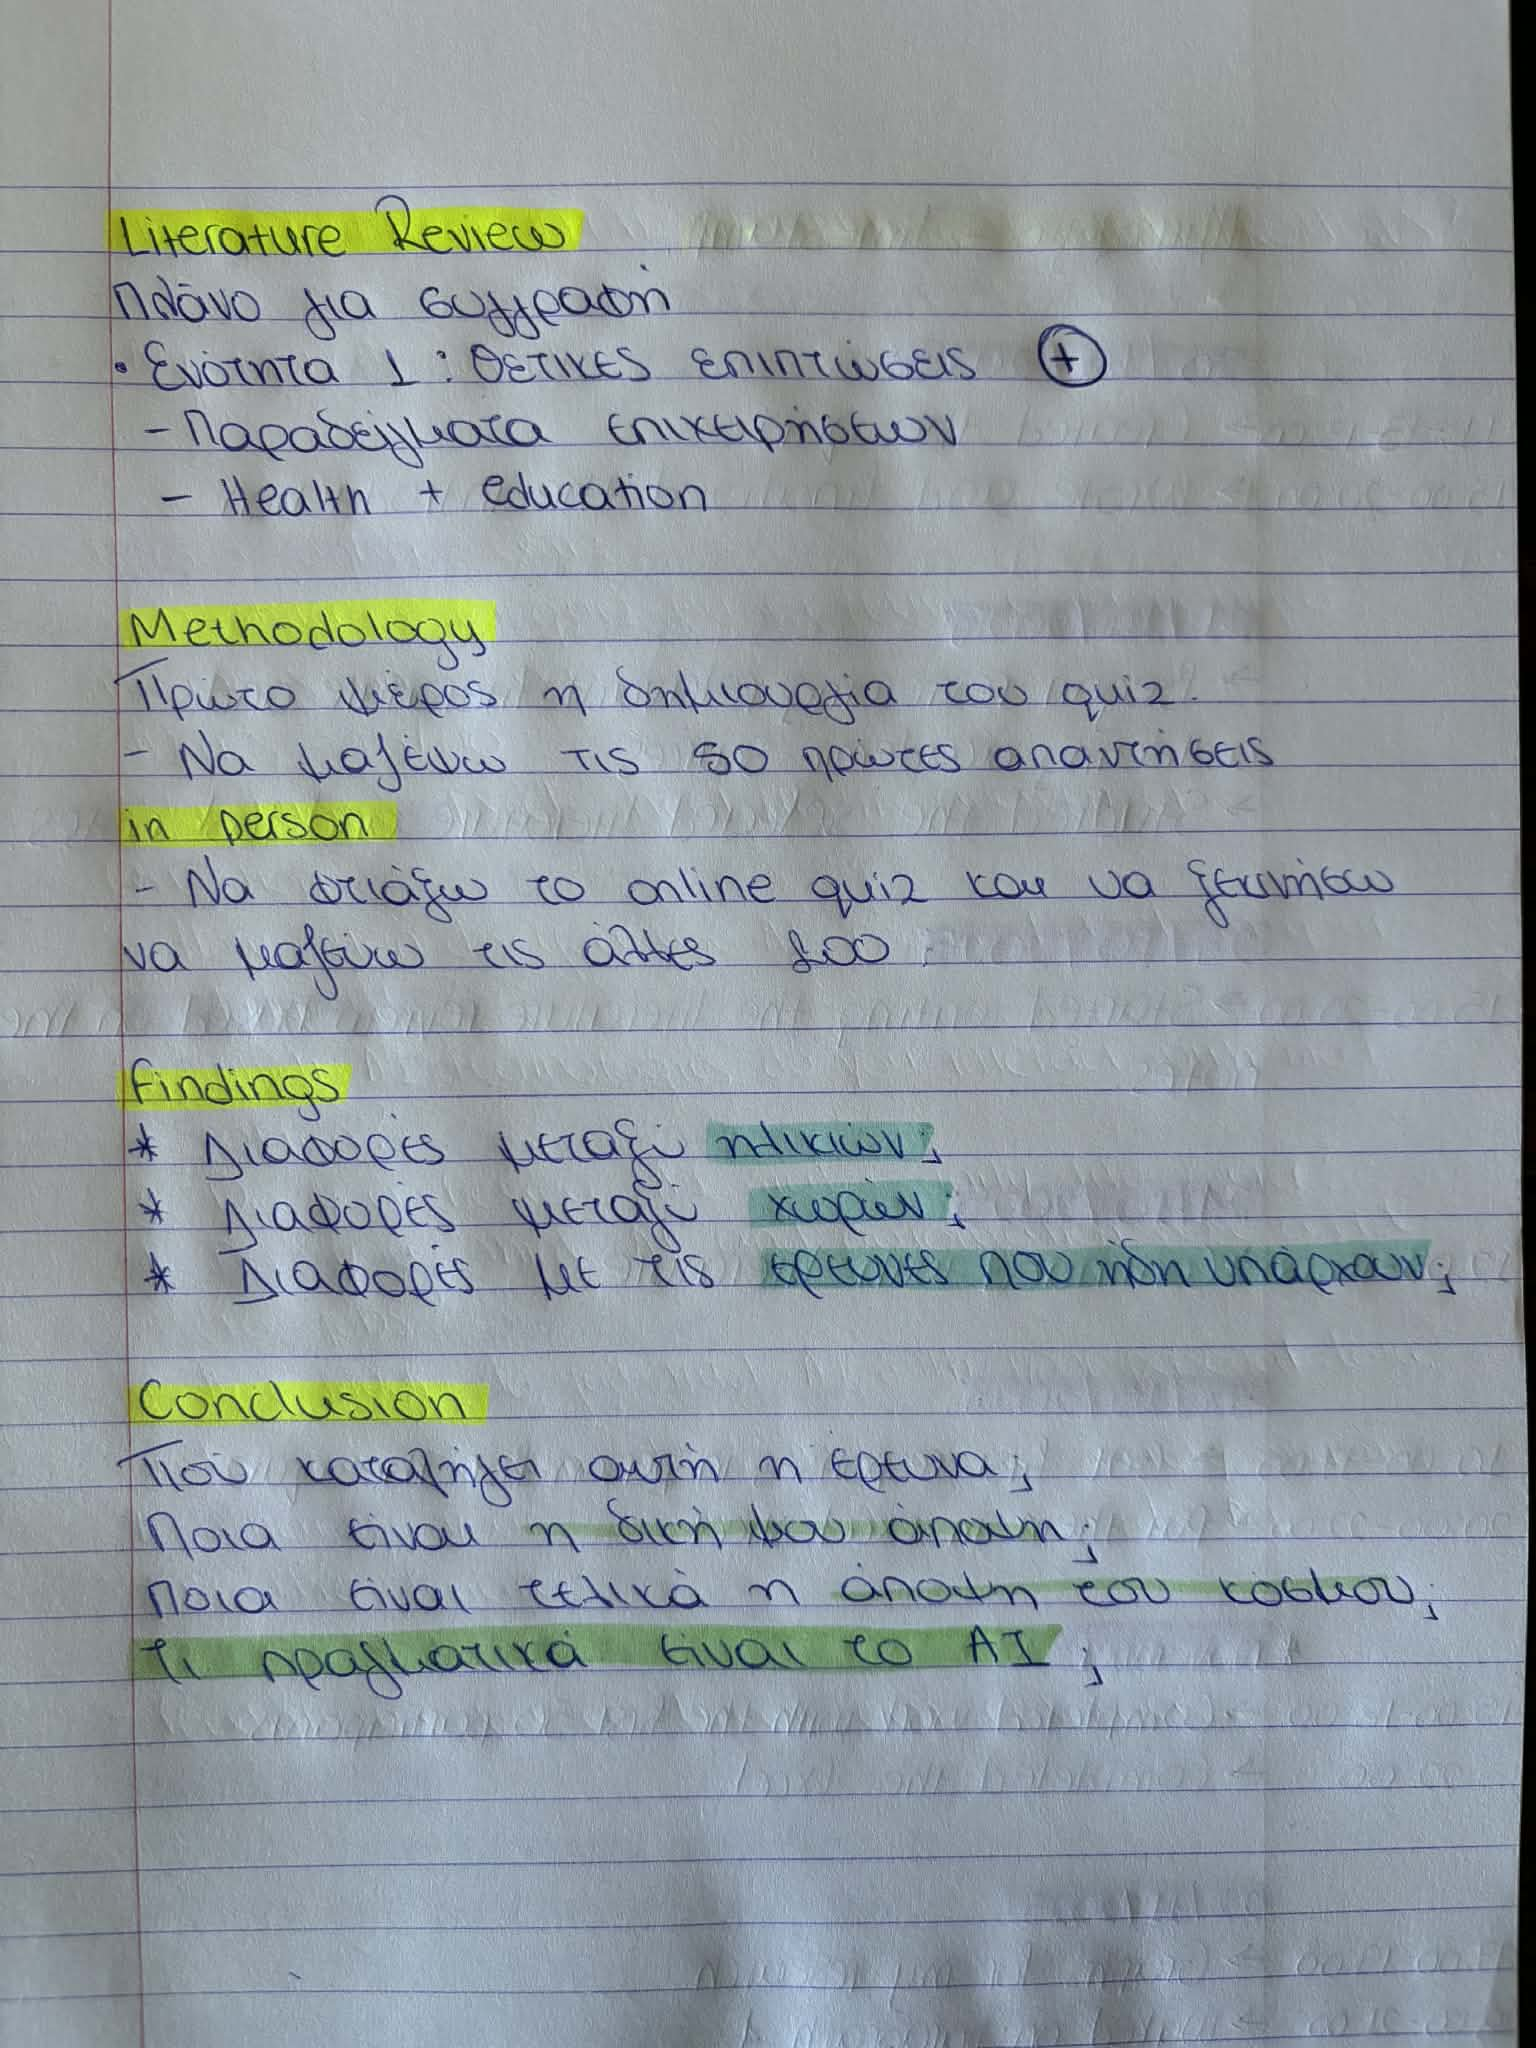 Literature Review
Πλάνο για συγγραφή
• Ενότητα 1 : Θετικές επιπτώσεις +
- Παραδείγματα επιχειρήσεων
- Health + education
Methodology
Πρώτο μέρος η δημιουργία του quiz.
- Να μαζέψω τις 50 πρώτες απαντήσεις
in person
- Να φτιάξω το online quiz και να ξεκινήσω
να μαζεύω τις άλλες
Findings
* Διαφορές μεταξύ ηλικιών;
* Διαφορές μεταξύ χωρών;
* Διαφορές με τις έρευνες που ήδη υπάρχουν;
Conclusion
Πού καταλήγει αυτή η έρευνα;
Ποια είναι η δική μου άποψη;
Ποια είναι τελικά η άποψη του κόσμου;
Τι πραγματικά είναι το AI;